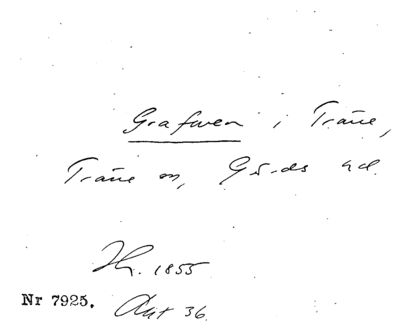 Grafwen i Träne,
Träne sn, Gärds hd.
Hr. 1855
Nr 7925. Avt 36.